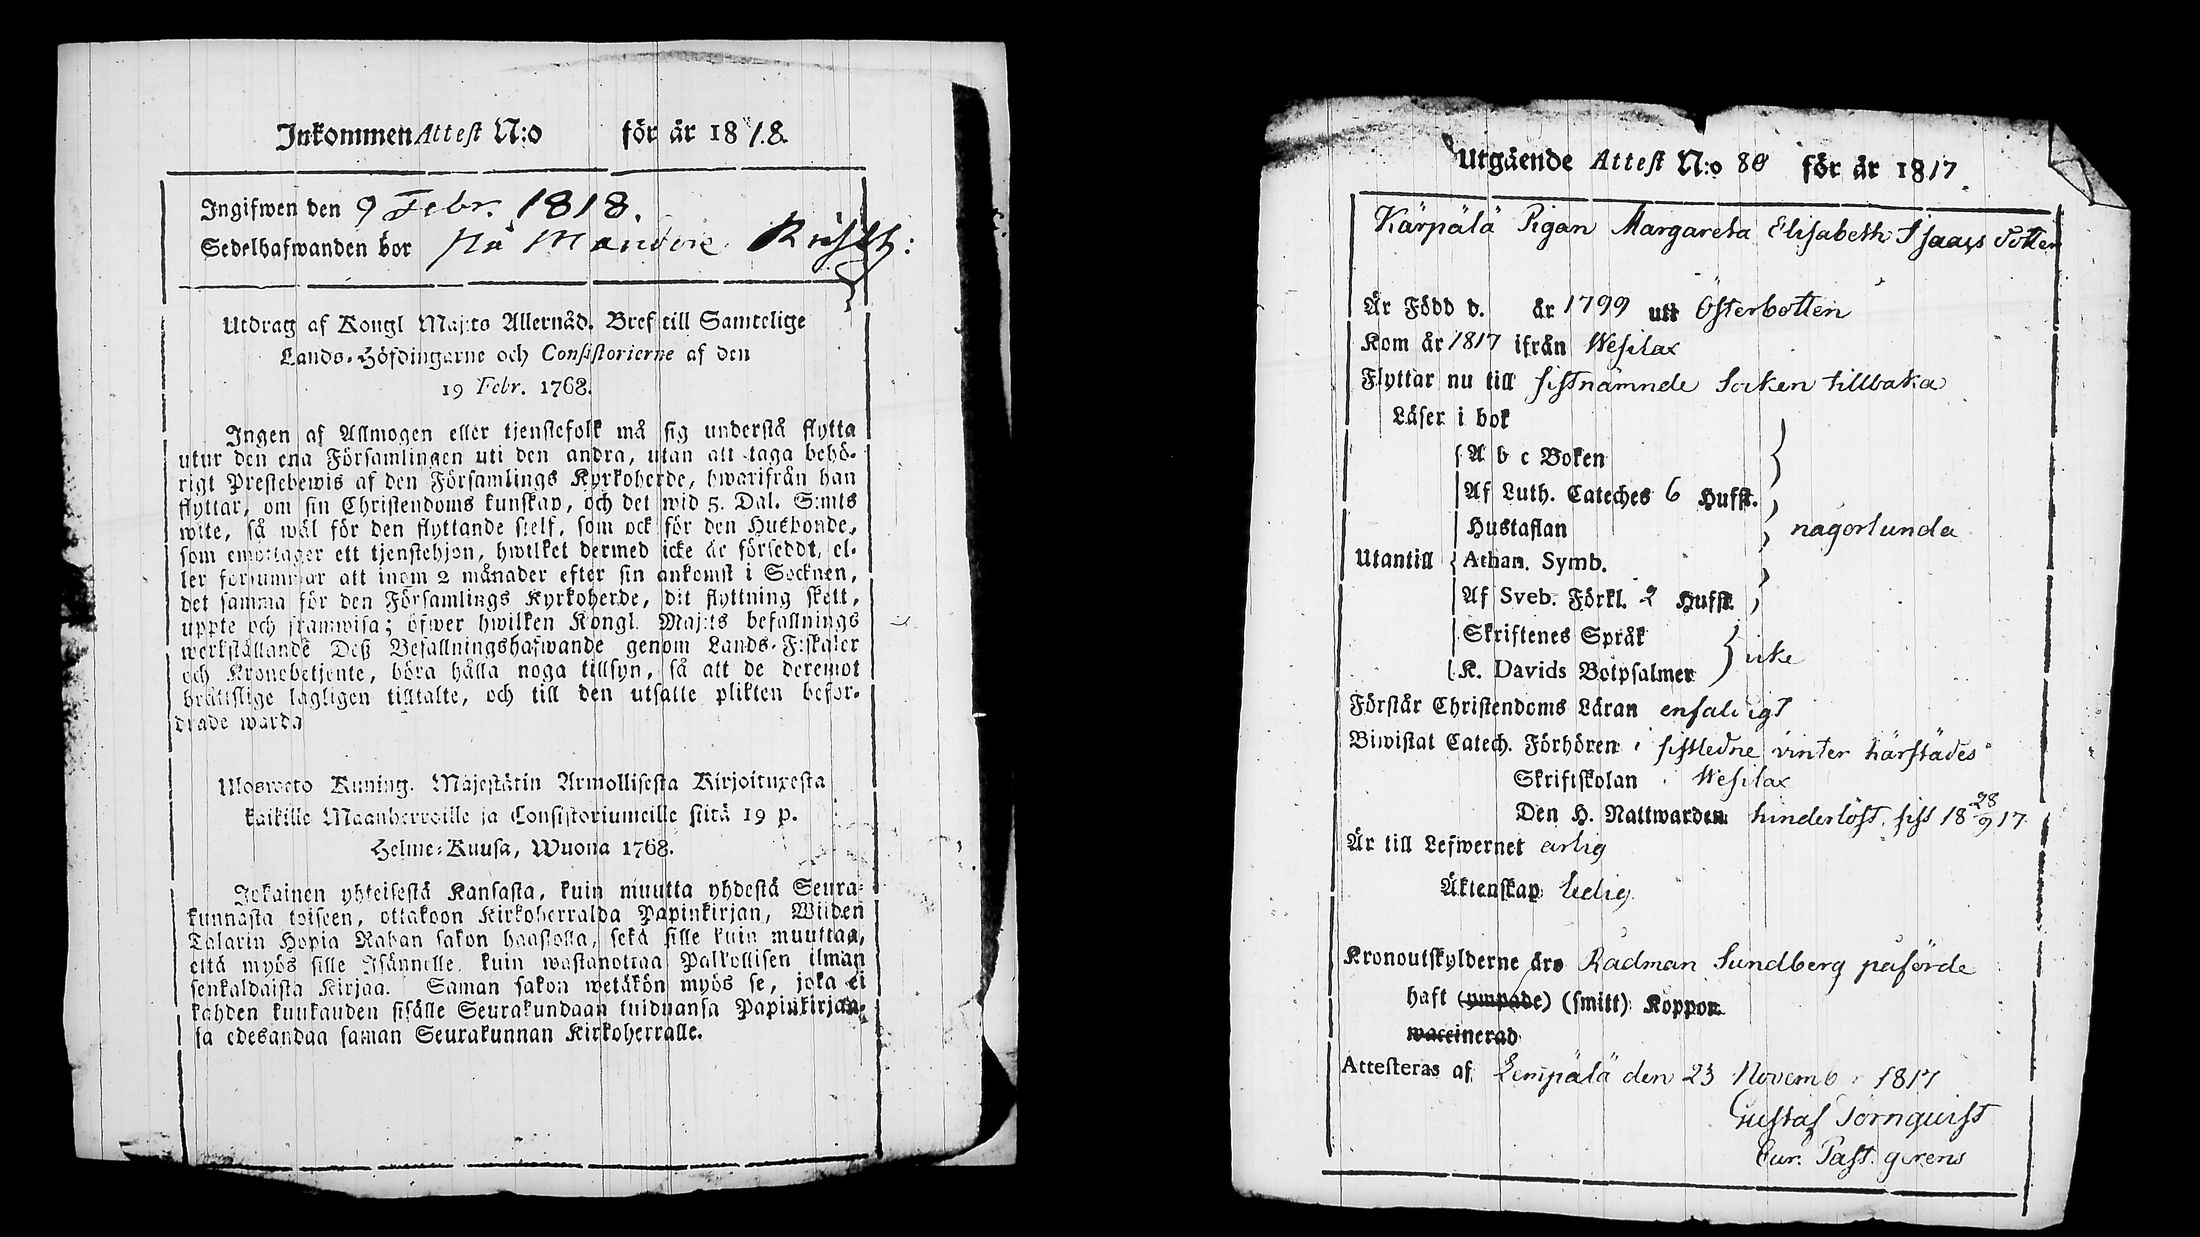 Inkommen Attest N:o för år 1818.
Ingifwen den 9 Febr. 1818.
Sedelhafwanden bor på
Utdrag af Kongl Maj:ts Allernåd. Bref till Samtelige
Lands-Höfdingarne och Consistorierne af den
19 Febr. 1768.
Ingen af Allmogen eller tjenstefolk må sig understå flytta
utur den ena Församlingen uti den andra, utan att taga behö-
rigt Prestebewis af den Församlings Kyrkoherde, hwarifrån han
flyttar, om sin Christendoms kunskap, och det wid 5. Dal. S:mts
wite, så wäl för den flyttande sielf, som ock för den Husbonde,
som emottager ett tjenstehjon, hwilket dermed icke är försedt, el-
ler försummar att inom 2 månader efter sin ankomst i Socknen,
det samma för den Församlings Kyrkoherde, dit flyttning skett,
uppte och framwisa; öfwer hwilken Kongl. Maj:ts befallnings
werkställande Deß Befallningshafwande genom Lands-Fiskaler
och Kronobetjente, böra hålla noga tillsyn, så att de deremot
brättslige lagligen tilltalte, och till den utsatte plikten befor-
drade warda
Ulosweto Kuning. Majestätin Armollisesta Kirjoituxesta
kaikille Maanherroille ja Consistoriumeille siitä 19 p.
Helme-Kuusa, Wuona 1768.
Jokainen yhteisestä Kansasta, kuin muutta yhdestä Seura-
kunnasta toiseen, ottakoon Kirkoherralda Papinkirjan, Wiiden
Talarin Hopia Rahan sakon haastolla, sekä sille kuin muuttaa,
että myös sille Isännelle, kuin wastanottaa Palkollisen ilman
senkaldaista Kirjaa. Saman sakon wetäkön myös se, joka ei
kahden kuukauden sisälle Seurakundaan tulduansa Papinkirjaan-
sa edesandaa saman Seurakunnan Kirkoherralle.
Utgående Attest N:o 88 för år 1817.
Kärpälä Pigan Margareta Elisabeth Isaacs Dotter
Är Född d. år 1799 utt Österbotten
Kom år 1817 ifrån Wesilax
Flyttar nu till sistnämnde Socken tillbaka
Läser i bok
A b c Boken
Af Luth. Cateches 6 Hufst.
Hustaflan någorlunda
Utantill Athan. Symb.
Af Sveb. Förkl. 2 Hufst.
Skriftenes Språk
icke
K. Davids Botpsalmer
Förstår Christendoms Läran enfaldigt
Biwistat Catech. Förhören i sistledne vinter härstädes
Skriftskolan i Wesilax
Den H. Nattwarden hinderlöst, sist 18 28/9 17.
Är till Lefwernet ärlig
Äktenskap ledig
Kronoutskylderne äro Rådman Sundberg påförde
haft (ympade) (smitt) Koppor
waccinerad
Attesteras af Lempälä den 23 Novemb. 1817
Gustaf Törnquist
Cur. Past. gerens